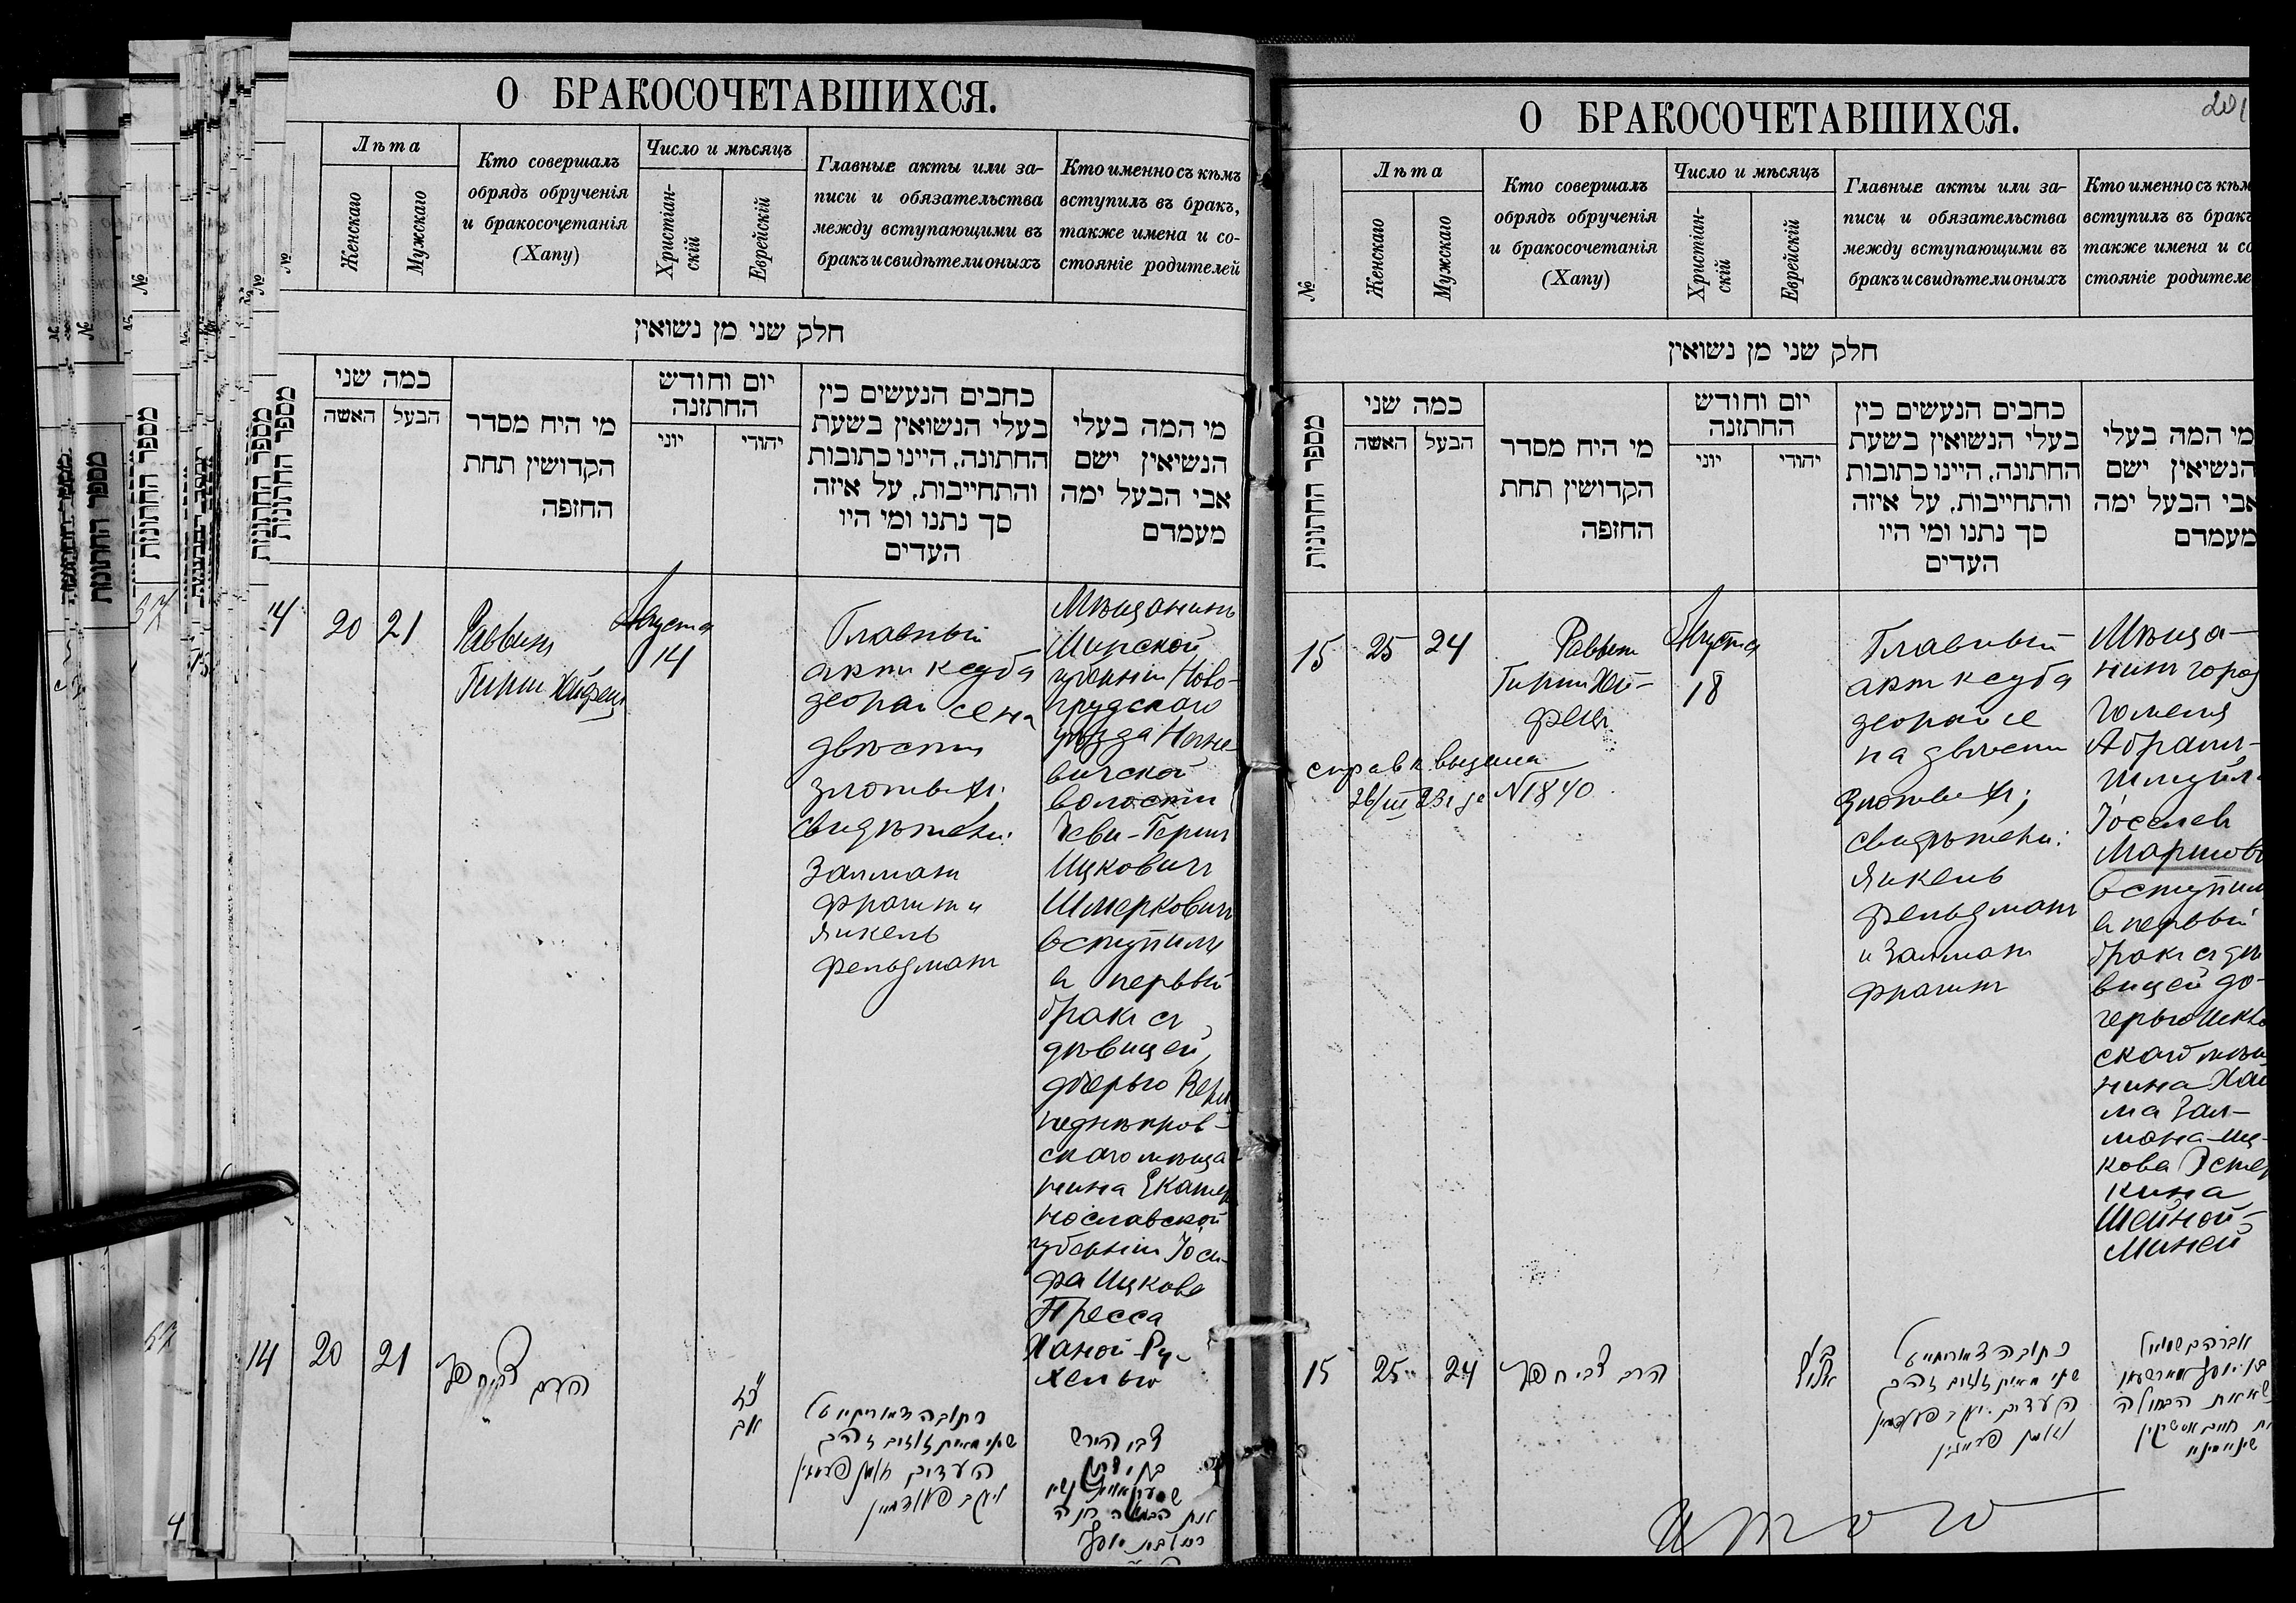 О БРАКОСОЧЕТАВШИХСЯ.
№
Лѣта
Женскаго
Мужскаго
Кто совершалъ
обрядъ обрученія
и бракосочетанія
(Хапу)
Число и мѣсяцъ
Христіан-
скій
Еврейскій
Главные акты или за-
писи и обязательства
между вступающими въ
бракъ и свидѣтели оныхъ
Кто именно съ кѣмъ
вступилъ въ бракъ,
также имена и со-
стояніе родителей
חלק שני מן נשואין
מספר החתונות
כמה שני
האשה
הבעל
מי היח מסדר
הקדושין תחת
החזפה
יום וחודש
החתזנה
יוני
יהודי
כחבים הנעשים כין
בעלי הנשואין בשעת
החתונה, היינו כתובות
והתחייבות, על איזה
סך נתנו ומי היו
העדים
מי המה בעלי
הנשיאין ישם
אבי הבעל ימה
מעמדם
14
20
21
Раввинъ
Гирш Хайфецъ
Августа
14
Главный
актъ кесуба
деорай сена
двѣсти
злотыхъ;
свидѣтели:
Залманъ
Фрагинъ и
Янкель
Фельдманъ
Мѣщанинъ
Минской
губерніи Ново-
грудскаго
уѣзда
вичской
волости
Гевш-Гершъ
Ицковичъ
Шмерковичъ
вступилъ
въ первый
бракъ съ
дѣвицей,
дочерью Верх
неднѣпров-
скаго мѣща
нина Екатер
нославской
губерніи Іоси-
фа Ицкова
Пресса
Ханой-Ру-
хелью
14
20
21
הרב צבי חפץ
אב
כתובה דאורייתא
שני מאות זוזים זהב
העדים זלמן פראגין
יעקב פעלדמאן
צבי הירש
בן יצחק
О БРАКОСОЧЕТАВШИХСЯ.
201
№
Лѣта
Женскаго
Мужскаго
Кто совершалъ
обрядъ обрученія
и бракосочетанія
(Хапу)
Число и мѣсяцъ
Христіан-
скій
Еврейскій
Главные акты или за-
писи и обязательства
между вступающими въ
бракъ и свидѣтели оныхъ
Кто именно съ кѣм
вступилъ въ бракъ
также имена и со
стояніе родителе
חלק שני מן נשואין
מספר החתונות
כמה שני
האשה
הבעל
מי היח מסדר
הקדושין תחת
החזפה
יום וחודש
החתזנה
יוני
יהודי
כחבים הנעשים כין
בעלי הנשואין בשעת
החתונה, היינו כתובות
והתחייבות, על איזה
סך נתנו ומי היו
העדים
מי המה בעלי
הנשיאין ישם
אבי הבעל ימה
מעמדם
15
25
24
Раввинъ
Гиршъ Хай-
фецъ
Августа
18
справка выдана
26/III 23 года №1840
Главный
актъ кесуба
деорай се
на двѣсти
злотыхъ;
свидѣтели:
Янкель
Фельдманъ
и Залманъ
Фрагинъ
Мѣща-
нинъ город
Гомеля
Абрамъ-
Шмуйл
Іоселевъ
Маршов
вступилъ
въ первый
бракъ съ дѣ
вицей до-
черью
скаго мѣщ
нина Хаи
ма Зал-
мона-Иц-
кова Эстер
кина
Шейной-
Миней
15
25
24
הרב צבי חפץ
אלול
כתובה דאורייתא
שני מאות זוזים זהב
העדים יעקב פעלדמאן
זלמן פראגין
אברהם שמואל